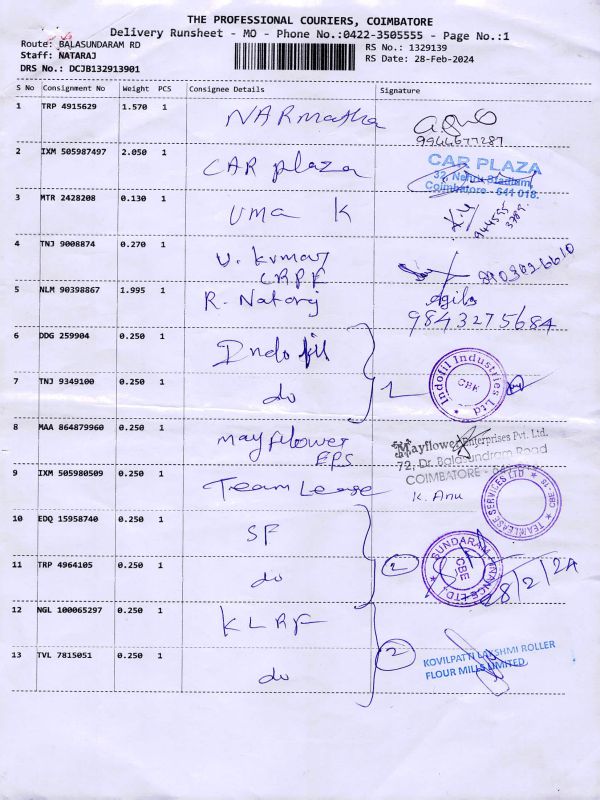 THE PROFESSIONAL COURIERS, COIMBATORE
Delivery Runsheet - MO - Phone No.:0422-3505555 - Page No.:1
Route: BALASUNDARAM RD
RS No.: 1329139
Staff: NATARAJ
RS Date: 28-Feb-2024
DRS No.: DCJB132913901
S No Consignment No Weight PCS Consignee Details Signature
1 TRP 4915629 1.570 1 NARmatha
9944677287
2 IXM 505987497 2.050 1 CAR plaza
CAR PLAZA
32, Nehru Stadium,
Coimbatore - 641 018.
3 MTR 2428208 0.130 1 UMA K
4 TNJ 9008874 0.270 1 V. Kumar
CRPF
5 NLM 90398867 1.995 1 R. Nataraj
Agila
9843275684
6 DDG 259904 0.250 1 Indofil
7 TNJ 9349100 0.250 1 do
Indofil Industries Ltd
CBE
8 MAA 864879960 0.250 1 mayflower
EPS
Mayflower Enterprises Pvt. Ltd.
72, Dr. Balasundram Road
COIMBATORE
9 IXM 505980509 0.250 1 Team Lease
K. Anu
TEAMLEASE SERVICES LTD
CBE-18
10 EDQ 15958740 0.250 1 SF
11 TRP 4964105 0.250 1 do
2
SUNDARAM FINANCE LTD.
CBE
28/2/24
12 NGL 100065297 0.250 1 KLRF
13 TVL 7815051 0.250 1 do
2
KOVILPATTI LAKSHMI ROLLER
FLOUR MILLS LIMITED